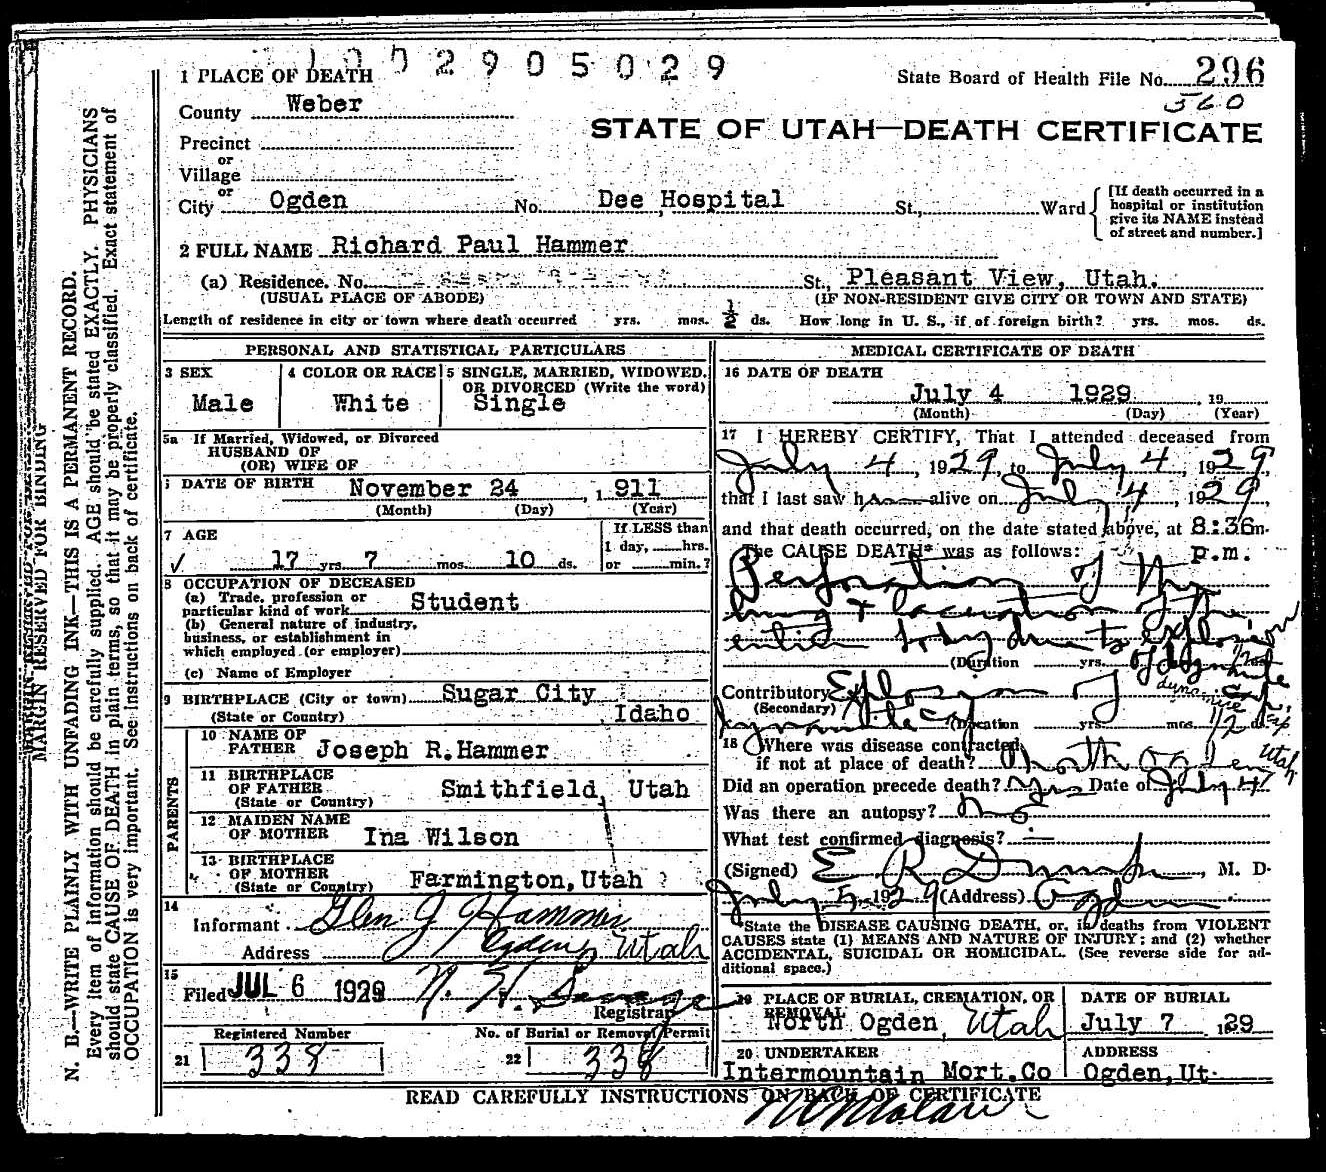 1 PLACE OF DEATH 1002905029
State Board of Health File No. 296
560
County Weber
STATE OF UTAH—DEATH CERTIFICATE
Precinct
or
Village
or
City Ogden No. Dee Hospital St., Ward
[If death occurred in a
hospital or institution
give its NAME instead
of street and number.]
2 FULL NAME Richard Paul Hammer
(a) Residence. No. St., Pleasant View, Utah.
(USUAL PLACE OF ABODE) (IF NON-RESIDENT GIVE CITY OR TOWN AND STATE)
Length of residence in city or town where death occurred yrs. mos. ½ ds. How long in U. S., if of foreign birth? yrs. mos. ds.
PERSONAL AND STATISTICAL PARTICULARS
3 SEX
Male
4 COLOR OR RACE
White
5 SINGLE, MARRIED, WIDOWED,
OR DIVORCED (Write the word)
Single
5a If Married, Widowed, or Divorced
HUSBAND OF
(OR) WIFE OF
DATE OF BIRTH November 24, 1911
(Month) (Day) (Year)
7 AGE
17 yrs. 7 mos. 10 ds.
If LESS than
1 day, hrs.
or min.?
8 OCCUPATION OF DECEASED
(a) Trade, profession or
particular kind of work Student
(b) General nature of industry,
business, or establishment in
which employed (or employer)
(c) Name of Employer
9 BIRTHPLACE (City or town) Sugar City
(State or Country) Idaho
PARENTS
10 NAME OF
FATHER Joseph R. Hammer
11 BIRTHPLACE
OF FATHER
(State or Country) Smithfield, Utah
12 MAIDEN NAME
OF MOTHER Ina Wilson
13 BIRTHPLACE
OF MOTHER
(State or Country) Farmington, Utah ?
14
Informant Glen J Hammer
Address Ogden, Utah
15
Filed JUL 6 1929 N. H. Savage
Registrar
Registered Number
21 338
No. of Burial or Removal Permit
22 338
MEDICAL CERTIFICATE OF DEATH
16 DATE OF DEATH
July 4 1929, 19
(Month) (Day) (Year)
17 I HEREBY CERTIFY, That I attended deceased from
July 4, 1929, to July 4, 1929,
that I last saw h alive on July 4, 1929,
and that death occurred, on the date stated above, at 8:36 m.
The CAUSE DEATH* was as follows: p.m.
Perforation of the
lung & laceration of the
entire body due to explosion
of dynamite
(Duration yrs.
Contributory Explosion of
(Secondary)
dynamite cap
dynamite cap
(Duration yrs. mos. 1/2 ds.
18 Where was disease contracted
if not at place of death? North Ogden Utah
Did an operation precede death? Yes Date of July 4
Was there an autopsy? no
What test confirmed diagnosis? —
(Signed) E. R. M. D.
July 5, 1929 (Address) Ogden
*State the DISEASE CAUSING DEATH, or, in deaths from VIOLENT
CAUSES state (1) MEANS AND NATURE OF INJURY; and (2) whether
ACCIDENTAL, SUICIDAL OR HOMICIDAL. (See reverse side for ad-
ditional space.)
19 PLACE OF BURIAL, CREMATION, OR
REMOVAL
North Ogden, Utah
DATE OF BURIAL
July 7, 29
20 UNDERTAKER
Intermountain Mort. Co
ADDRESS
Ogden, Ut.
READ CAREFULLY INSTRUCTIONS ON BACK OF CERTIFICATE
MARGIN RESERVED FOR BINDING
N. B.—WRITE PLAINLY WITH UNFADING INK—THIS IS A PERMANENT RECORD.
Every item of information should be carefully supplied. AGE should be stated EXACTLY. PHYSICIANS
should state CAUSE OF DEATH in plain terms, so that it may be properly classified. Exact statement of
OCCUPATION is very important. See instructions on back of certificate.